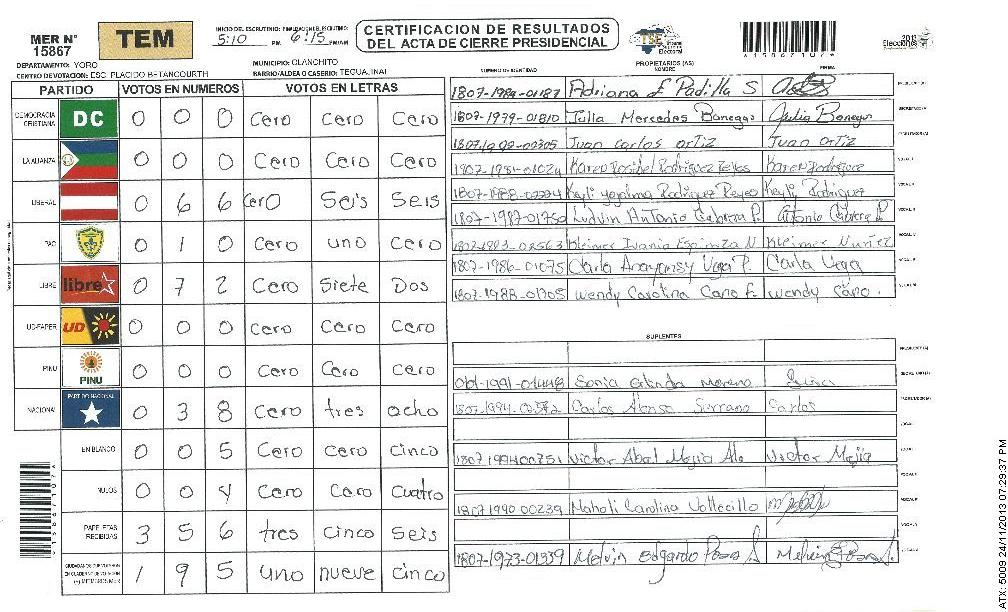 MER N° 15867
TEM
INICIO DEL ESCRUTINIO: FINALIZACION EL ESCRUTINIO:
5:10 PM. 6:15 PM/AM
CERTIFICACION DE RESULTADOS
DEL ACTA DE CIERRE PRESIDENCIAL
TSE
Tribunal Supremo Electoral
2013
Elecciones
*1586710/*
DEPARTAMENTO: YORO
MUNICIPIO: OLANCHITO
CENTRO DE VOTACION: ESC. PLACIDO BETANCOURTH
BARRIO/ALDEA O CASERIO: TEGUAJINAL
PARTIDO VOTOS EN NUMEROS VOTOS EN LETRAS
DEMOCRACIA CRISTIANA DC 0 0 0 Cero Cero Cero
LA ALIANZA 0 0 0 Cero Cero Cero
LIBERAL 0 6 6 Cero Seis Seis
PAC 0 1 0 Cero uno Cero
LIBRE libre 0 7 2 Cero Siete Dos
UD-FAPER UD 0 0 0 Cero Cero Cero
PINU PINU 0 0 0 Cero Cero Cero
NACIONAL PARTIDO NACIONAL 0 3 8 Cero tres ocho
EN BLANCO 0 0 5 Cero Cero Cinco
NULOS 0 0 4 Cero Cero Cuatro
PAPELETAS RECIBIDAS 3 5 6 tres Cinco Seis
CIUDADANOS QUE VOTARON EN CUADERNO DE VOTACION (+) MIEMBROS MER 1 9 5 uno nueve cinco
PROPIETARIOS (AS)
NUMERO DE IDENTIDAD NOMBRE FIRMA
1807-1984-01187 Adriana E Padilla S
1807-1979-01810 Julia Mercedes Banegas Julia Banegas
Juan Carlos ortiz Juan ortiz
Rodriguez Reyes Karen Rodriguez
Rodriguez Reyes Keyli Rodriguez
1807-1987-01750 Ludvin Antonio Cabrera P. Antonio Cabrera P.
Kleimer Ivania Espinoza N Kleimer Nuñez
1807-1986-01075 Carla Vega P. Carla Vega
1807-1988-01705 Wendy Carolina Cano F. Wendy Cano.
SUPLENTES
Sonia Moreno
Carlos Alonso Serrano Carlos
1807-199400751 Victor Abel Mejia Victor Mejia
1807 1990 00239 Naholi Carolina Vallecillo
1807-1973-01339 Melvin Edgardo
ATX: 5009 24/11/2013 07:29:37 PM